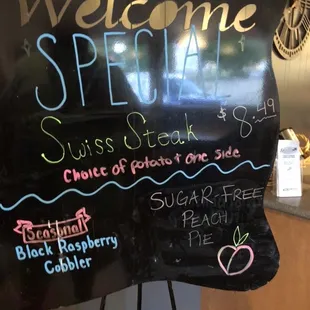 Welcome
SPECIAL
$8.49
Swiss Steak
Choice of potato + one side
Seasonal
Black Raspberry
Cobbler
SUGAR-FREE
PEACH
PIE